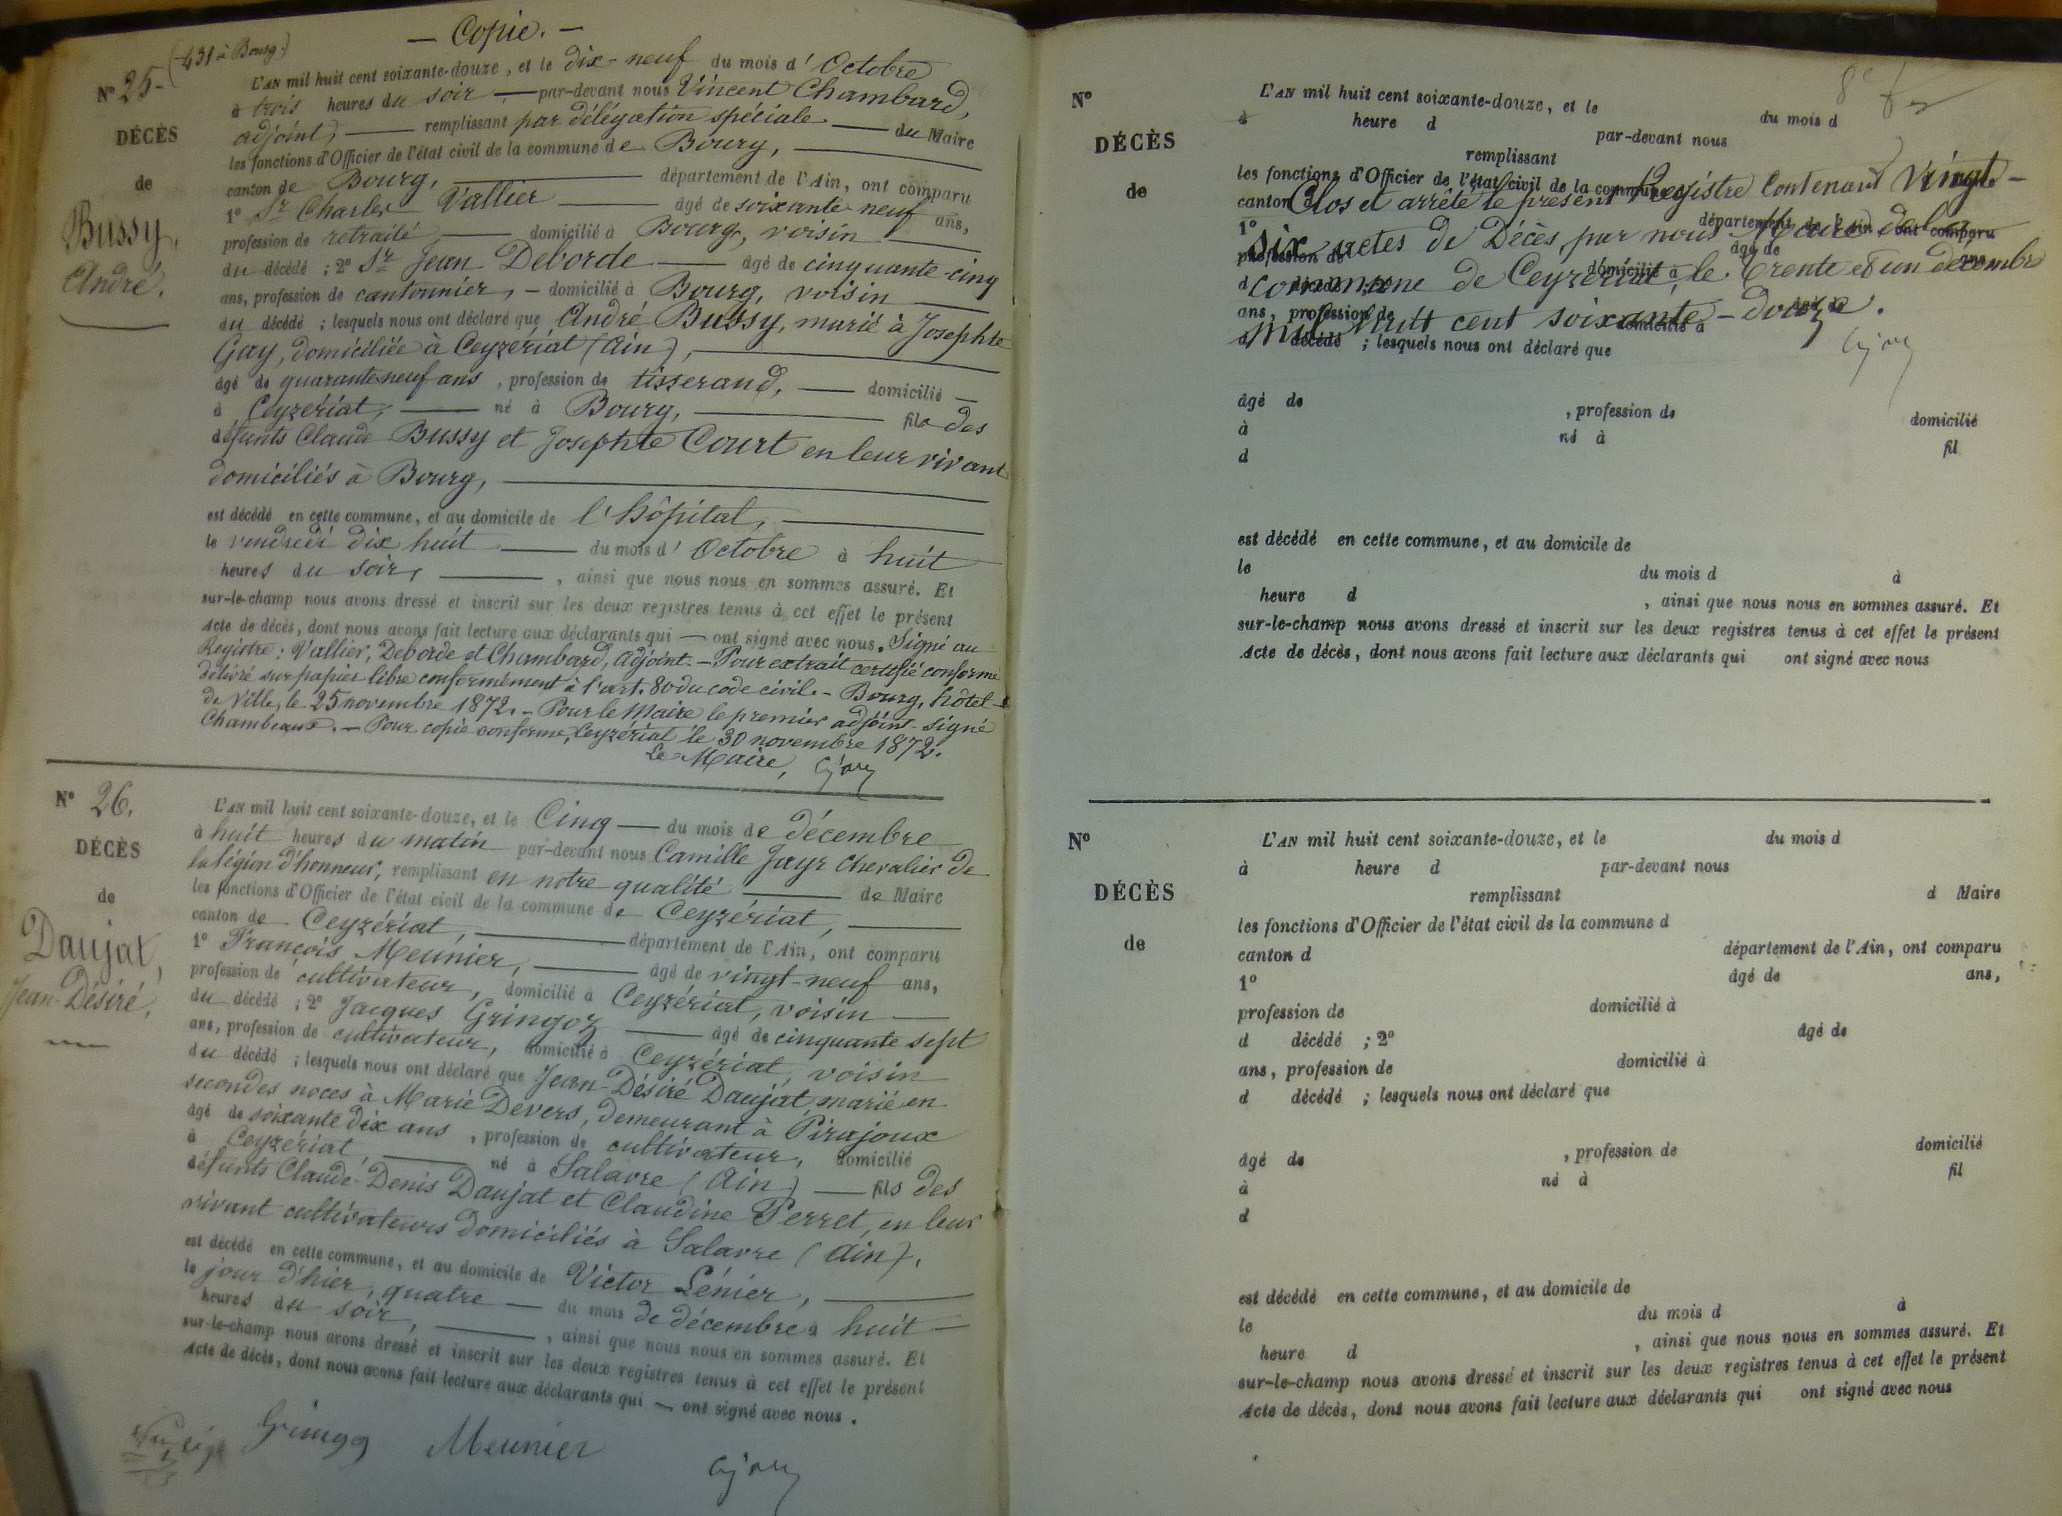 — Copie. —
(431 à Bourg.)
N° 25-
DÉCÈS
de
Bussy,
André.
L'AN mil huit cent soixante-douze, et le dix-neuf du mois d' Octobre
à trois heures du soir, — par-devant nous Vincent Chambard,
adjoint, — remplissant par délégation spéciale — du Maire
les fonctions d'Officier de l'état civil de la commune de Bourg,
canton de Bourg, — département de l'Ain, ont comparu
1° Sr Charles Vallier — âgé de soixante neuf ans,
profession de retraité, — domicilié à Bourg, voisin
du décédé ; 2° Sr Jean Deborde — âgé de cinquante-cinq
ans, profession de cantonnier, — domicilié à Bourg, voisin
du décédé ; lesquels nous ont déclaré que André Bussy, marié à Josephte
Gay, domiciliée à Ceyzériat (Ain),
âgé de quarante neuf ans, profession de tisserand, — domicilié
à Ceyzériat, — né à Bourg, — fils des
défunts Claude Bussy et Josephte Court en leur vivant
domiciliés à Bourg,
est décédé en cette commune, et au domicile de l'hôpital,
le vendredi dix huit — du mois d' Octobre à huit
heures du soir, — , ainsi que nous nous en sommes assuré. Et
sur-le-champ nous avons dressé et inscrit sur les deux registres tenus à cet effet le présent
Acte de décès, dont nous avons fait lecture aux déclarants qui — ont signé avec nous. Signé au
Registre : Vallier, Deborde et Chambard, adjoint. — Pour extrait certifié conforme
délivré sur papier libre conformément à l'art. 80 du code civil. — Bourg, hôtel-
de Ville, le 25 novembre 1872. — Pour le Maire le premier adjoint — signé
Chambeaux. — Pour copie conforme, Ceyzériat le 30 novembre 1872.
Le Maire, CJayr
N° 26.
DÉCÈS
de
Daujat,
Jean-Désiré,
L'AN mil huit cent soixante-douze, et le Cinq — du mois de décembre
à huit heures du matin par-devant nous Camille Jayr chevalier de
la légion d'honneur, remplissant en notre qualité — de Maire
les fonctions d'Officier de l'état civil de la commune de Ceyzériat,
canton de Ceyzériat, — département de l'Ain, ont comparu
1° François Meunier, — âgé de vingt-neuf ans,
profession de cultivateur, domicilié à Ceyzériat, voisin —
du décédé ; 2° Jacques Gringoz — âgé de cinquante sept
ans, profession de cultivateur, domicilié à Ceyzériat, voisin
du décédé ; lesquels nous ont déclaré que Jean-Désiré Daujat marié en
secondes noces à Marie Devers, demeurant à Pirajoux
âgé de soixante dix ans, profession de cultivateur, domicilié
à Ceyzériat, — né à Salavre (Ain) — fils des
défunts Claude-Denis Daujat et Claudine Perret, en leur
vivant cultivateurs domiciliés à Salavre (Ain).
est décédé en cette commune, et au domicile de Victor Lénier,
le jour d'hier, quatre — du mois de décembre à huit —
heures du soir, — , ainsi que nous nous en sommes assuré. Et
sur-le-champ nous avons dressé et inscrit sur les deux registres tenus à cet effet le présent
Acte de décès, dont nous avons fait lecture aux déclarants qui — ont signé avec nous.
Gringoz Meunier CJayr
N°
DÉCÈS
de
L'AN mil huit cent soixante-douze, et le du mois d
à heure d par-devant nous
remplissant
les fonctions d'Officier de l'état civil de la commune
Clos et arrêté le présent Registre Contenant Vingt-
canton d département de l'Ain, ont comparu
1° âgé de ans,
six actes de Décès, par nous Maire de la
profession de domicilié à
commune de Ceyzériat, le trente et un décembre
d décédé ; 2° âgé de
ans, profession de domicilié à
mil huit cent soixante-douze.
d décédé ; lesquels nous ont déclaré que
CJayr
âgé de , profession de domicilié
à né à fil
d
est décédé en cette commune, et au domicile de
le du mois d à
heure d , ainsi que nous nous en sommes assuré. Et
sur-le-champ nous avons dressé et inscrit sur les deux registres tenus à cet effet le présent
Acte de décès, dont nous avons fait lecture aux déclarants qui ont signé avec nous
N°
DÉCÈS
de
L'AN mil huit cent soixante-douze, et le du mois d
à heure d par-devant nous
remplissant d Maire
les fonctions d'Officier de l'état civil de la commune d
canton d département de l'Ain, ont comparu
1° âgé de ans,
profession de domicilié à
d décédé ; 2° âgé de
ans, profession de domicilié à
d décédé ; lesquels nous ont déclaré que
âgé de , profession de domicilié
à né à fil
d
est décédé en cette commune, et au domicile de
le du mois d à
heure d , ainsi que nous nous en sommes assuré. Et
sur-le-champ nous avons dressé et inscrit sur les deux registres tenus à cet effet le présent
Acte de décès, dont nous avons fait lecture aux déclarants qui ont signé avec nous